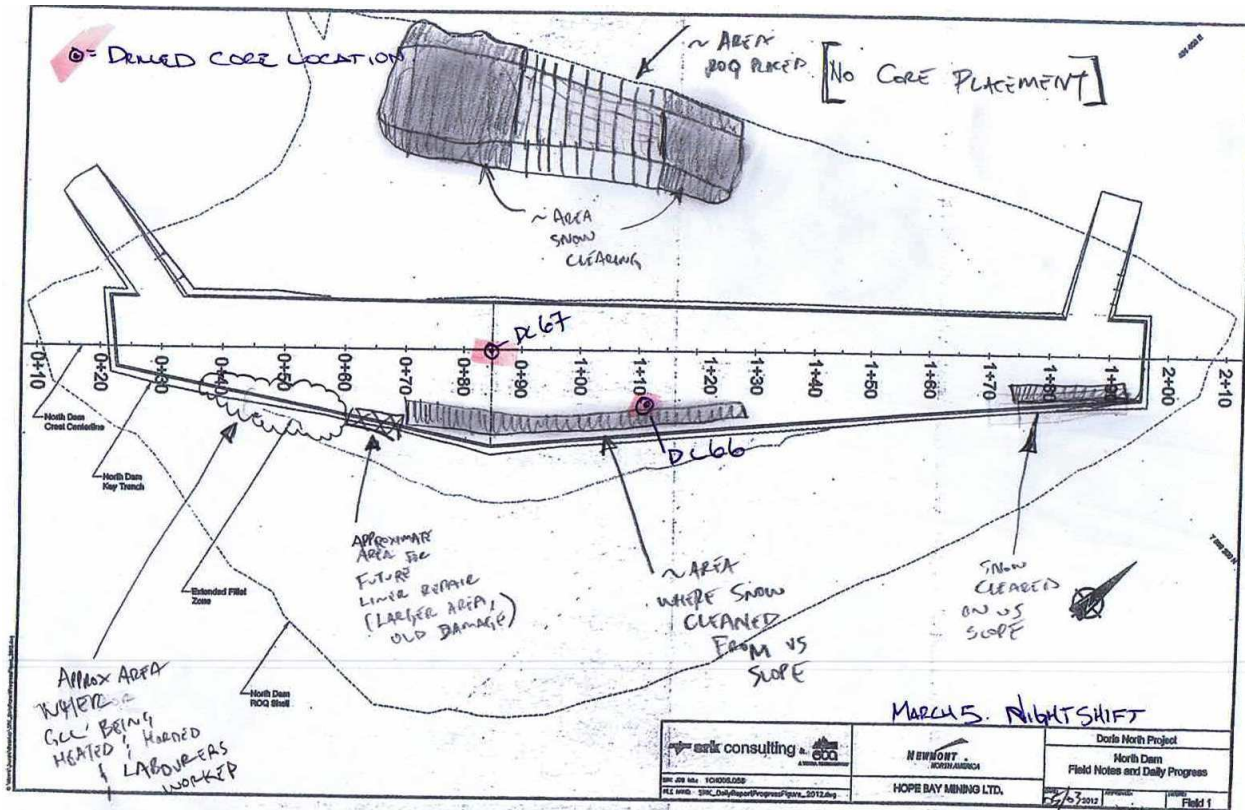 = DRILLED CORE LOCATION
~ AREA
ROQ PLACED
[NO CORE PLACEMENT]
~ AREA
SNOW
CLEARING
DC67
0+10
0+20
0+30
0+40
0+50
0+60
0+70
0+80
0+90
1+00
1+10
1+20
1+30
1+40
1+50
1+60
1+70
1+80
1+90
2+00
2+10
DC66
North Dam
Crest Centerline
North Dam
Key Trench
Extended Fillet
Zone
North Dam
ROQ Shell
APPROXIMATE
AREA FOR
FUTURE
LINER REPAIR
(LARGER AREA,
OLD DAMAGE)
~ AREA
WHERE SNOW
CLEANED
FROM US
SLOPE
SNOW
CLEARED
ON US
SLOPE
APPROX AREA
WHERE
GCL BEING
HEATED & HOARDED
& LABOURERS
WORKED
MARCH 5. NIGHTSHIFT
srk consulting &
eba
NEWMONT
NORTH AMERICA
HOPE BAY MINING LTD.
Doris North Project
North Dam
Field Notes and Daily Progress
FILE NAME: SRK_DailyReportProgressFigure_2012.dwg
05/03/2012
Field 1